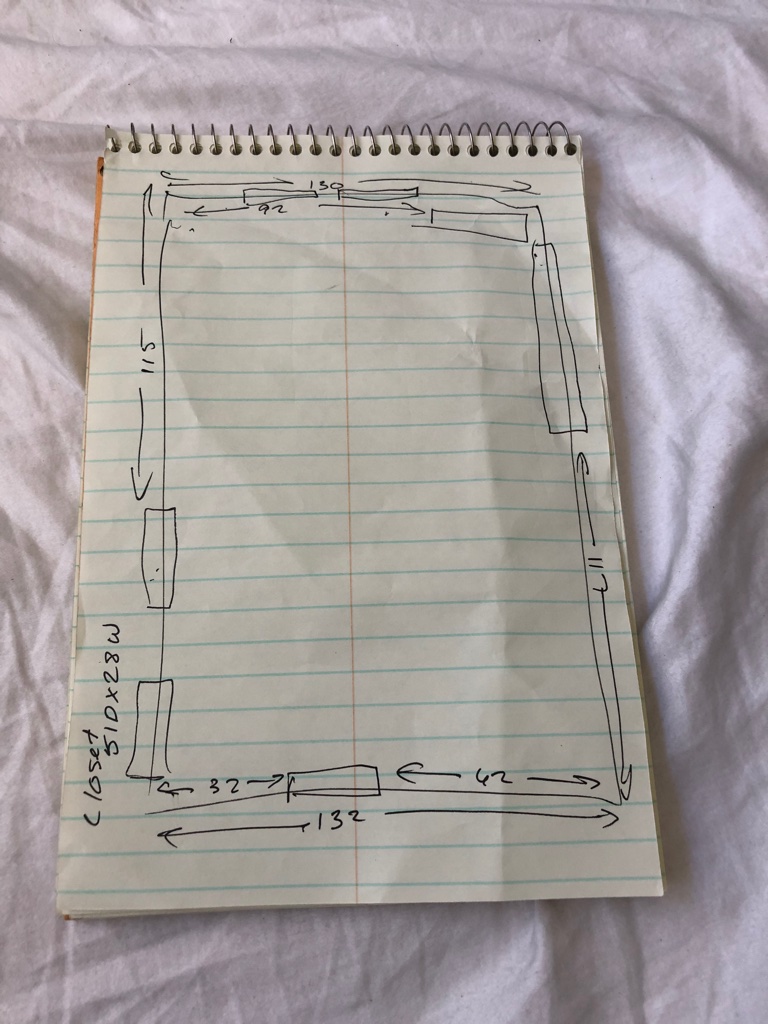 130
92
115
Closet
51D x 28W
32
42
132